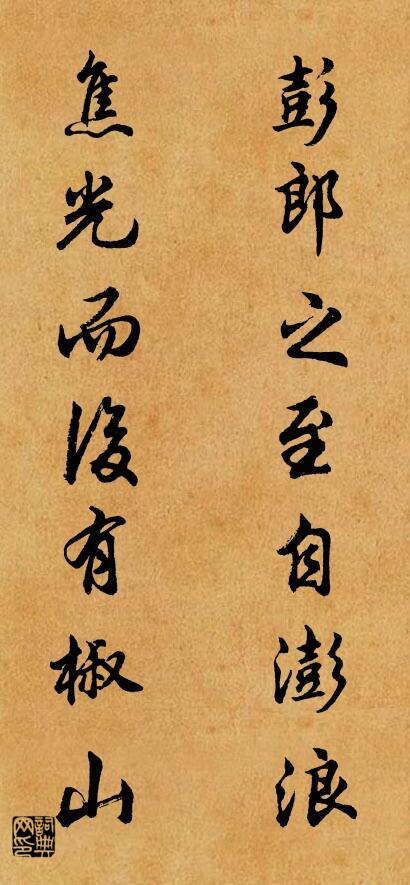 彭郎之至自澎浪
焦光而後有椒山
詞典网印